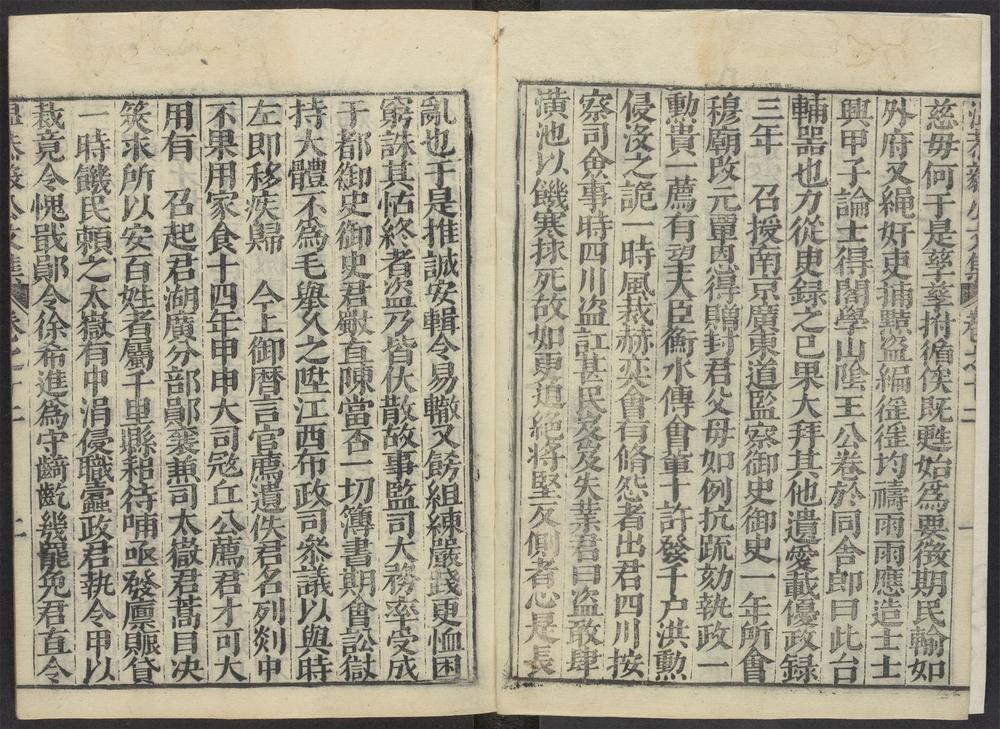 慈毋何于是孳孳拊循俟既甦始為要徵期民輸如
外府又繩好吏捕黠盜編徭徭均禱雨雨應造士士
興甲子論士得閣學山陰王公卷於同舍郎曰此台
輔器也力從吏録之已果大拜其他遺愛載優政録
三年　召授南京廣東道監察御史御史一年所會
穆廟改元單恩得贈封君父毋如例抗疏劾執政一
勳貴一薦有望大臣衡水傅會董十許發千户洪勳
侵沒之詭一時風裁赫奕會有脩怨者出君四川按
察司僉事時四川盜訌甚民岌岌失葉君曰盜敢肆
潢池以饑寒捄死故如更追絕將堅反側者心是長
亂也于是推誠安輯令易轍又飭組練嚴踐更恤困
窮誅其怙終者盜乃皆伏散故事監司大務率受成
于都御史御史君嶽嶽直陳當否一切簿書期會訟獄
持大體不為毛舉久之陞江西布政司叅議以與時
左即移疾歸　今上御曆言官薦遺佚君名列剡中
不果用家食十四年申申大司㓂丘公薦君才可大
用有　召起君湖廣分部鄖襄兼司太嶽君蒿目决
筴求所以安百姓者屬千里縣耜待哺亟發廩賑貸
一時饑民頼之太嶽有中涓侵職蠧政君執令甲以
裁竟令愧戢鄖令徐希進為守齮齕幾罷免君直令